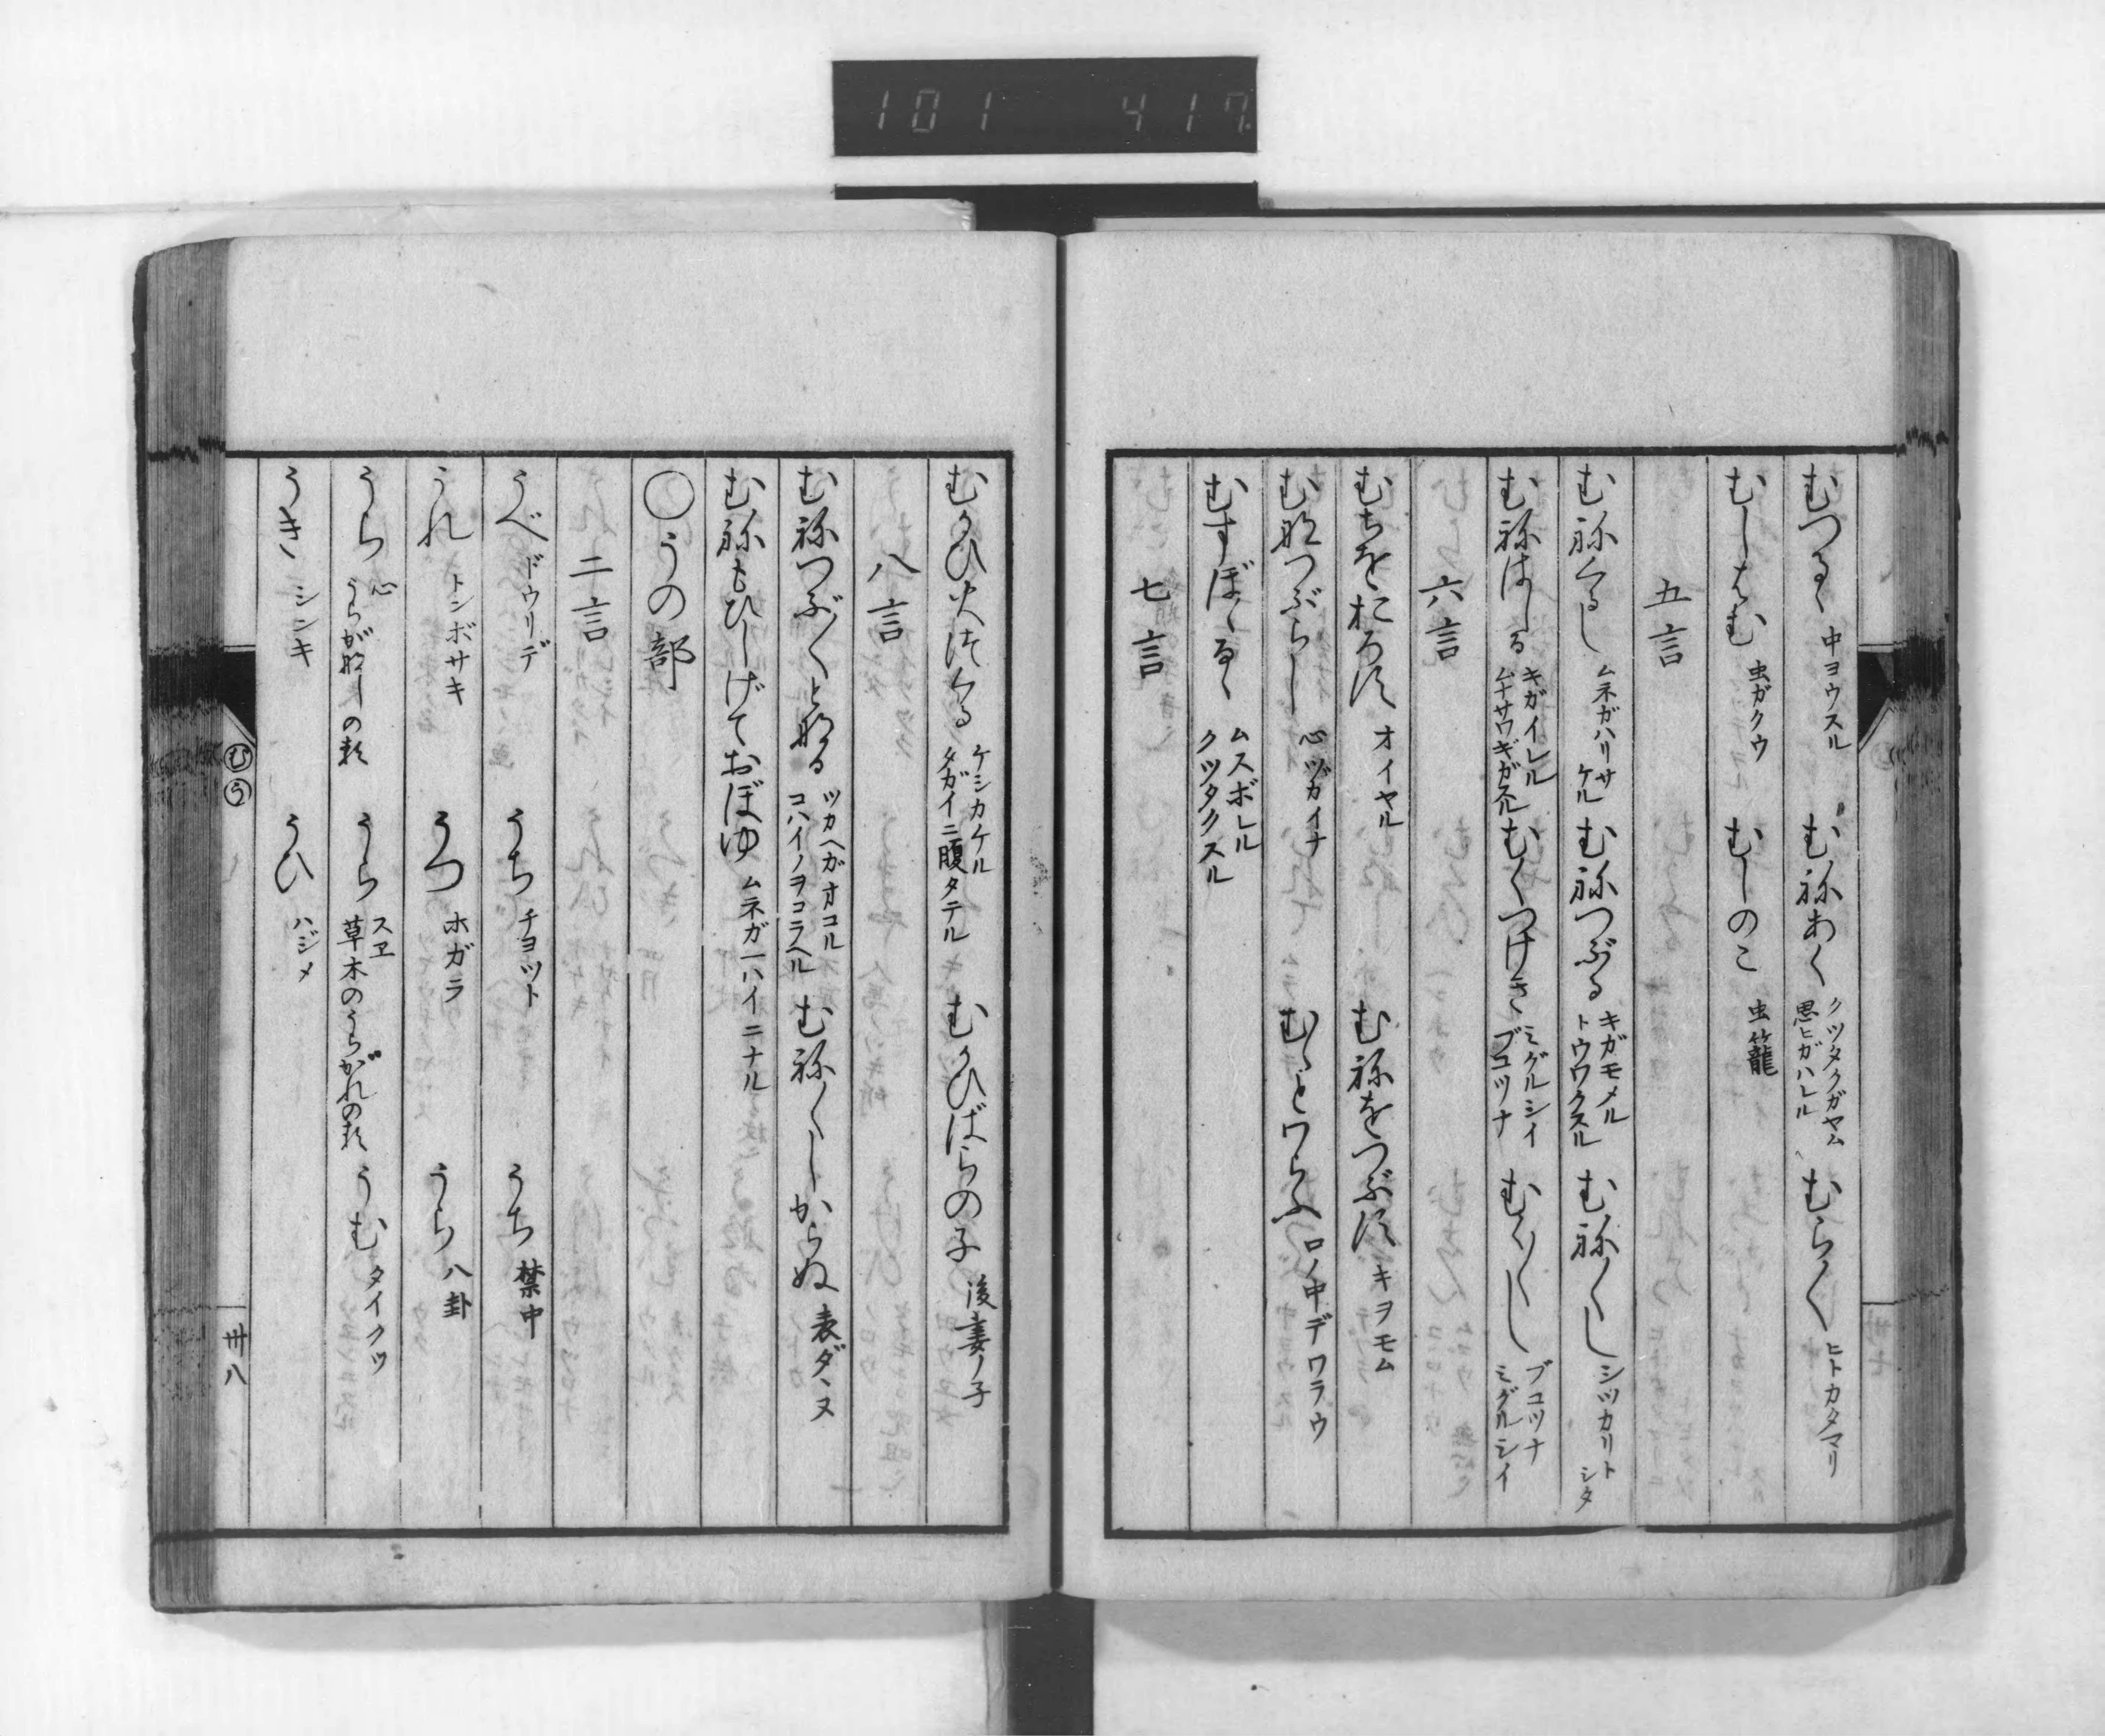 101 417.
むつるゝ 中ヨウスル むねあく クツタクガヤム 思ヒガハレル むら〱 ヒトカタマリ
むしはむ 虫ガクウ むしのこ 虫籠
五言
むねくるし ムネガハリサケル むねつぶる キガモメル トウワクスル むね〱し シツカリトシタ
むねはしる キガイレル ムナサワギガスル むくつけき ミグルシイ ブコツナ むく〱し ブコツナ ミグルシイ
六言
むちをおろす オイヤル むねをつぶす キヲモム
むねつぶらし 心ヅカイナ むゝとワらふ 口ノ中デワラウ
むすぼゝるゝ ムスボレル クツタクスル
七言
むかひ火つくる ケシカケル タガイニ腹タテル むかひばらの子 後妻ノ子
八言
むねつぶ〱となる ツカヘガオコル コハイノヲコラヘル むね〱しからぬ 表ダヽヌ
むねもひしげておぼゆ ムネガ一ハイニナル
○うの部
二言
うべ ドウリデ うち チヨツト うち 禁中
うれ トンボサキ うつ ホガラ うら 八卦
うら 心 うらがなしの類 うら スヱ 草木のうらがれの類 うむ タイクツ
うき シンキ うひ ハジメ
むう
卅八